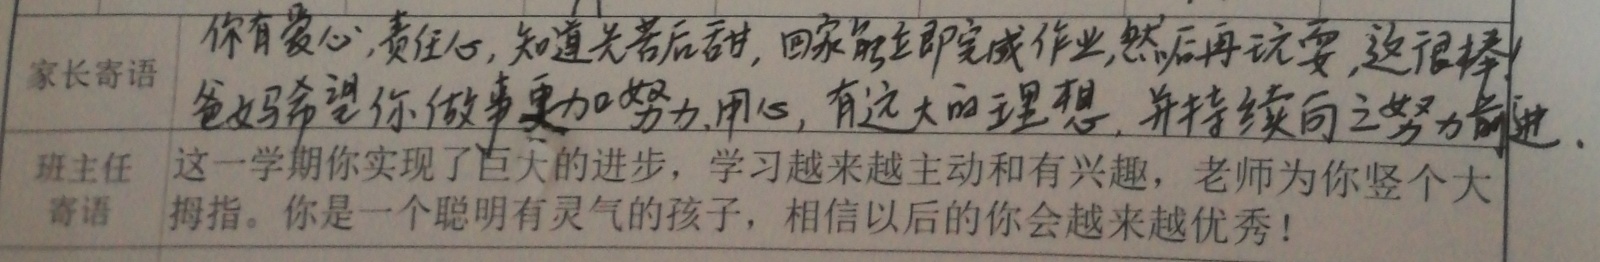 家长寄语
你有爱心,责任心,知道先苦后甜,回家能立即完成作业,然后再玩耍,这很棒!
爸妈希望你做事更加努力、用心,有远大的理想,并持续向之努力前进.
班主任寄语
这一学期你实现了巨大的进步，学习越来越主动和有兴趣，老师为你竖个大
拇指。你是一个聪明有灵气的孩子，相信以后的你会越来越优秀！